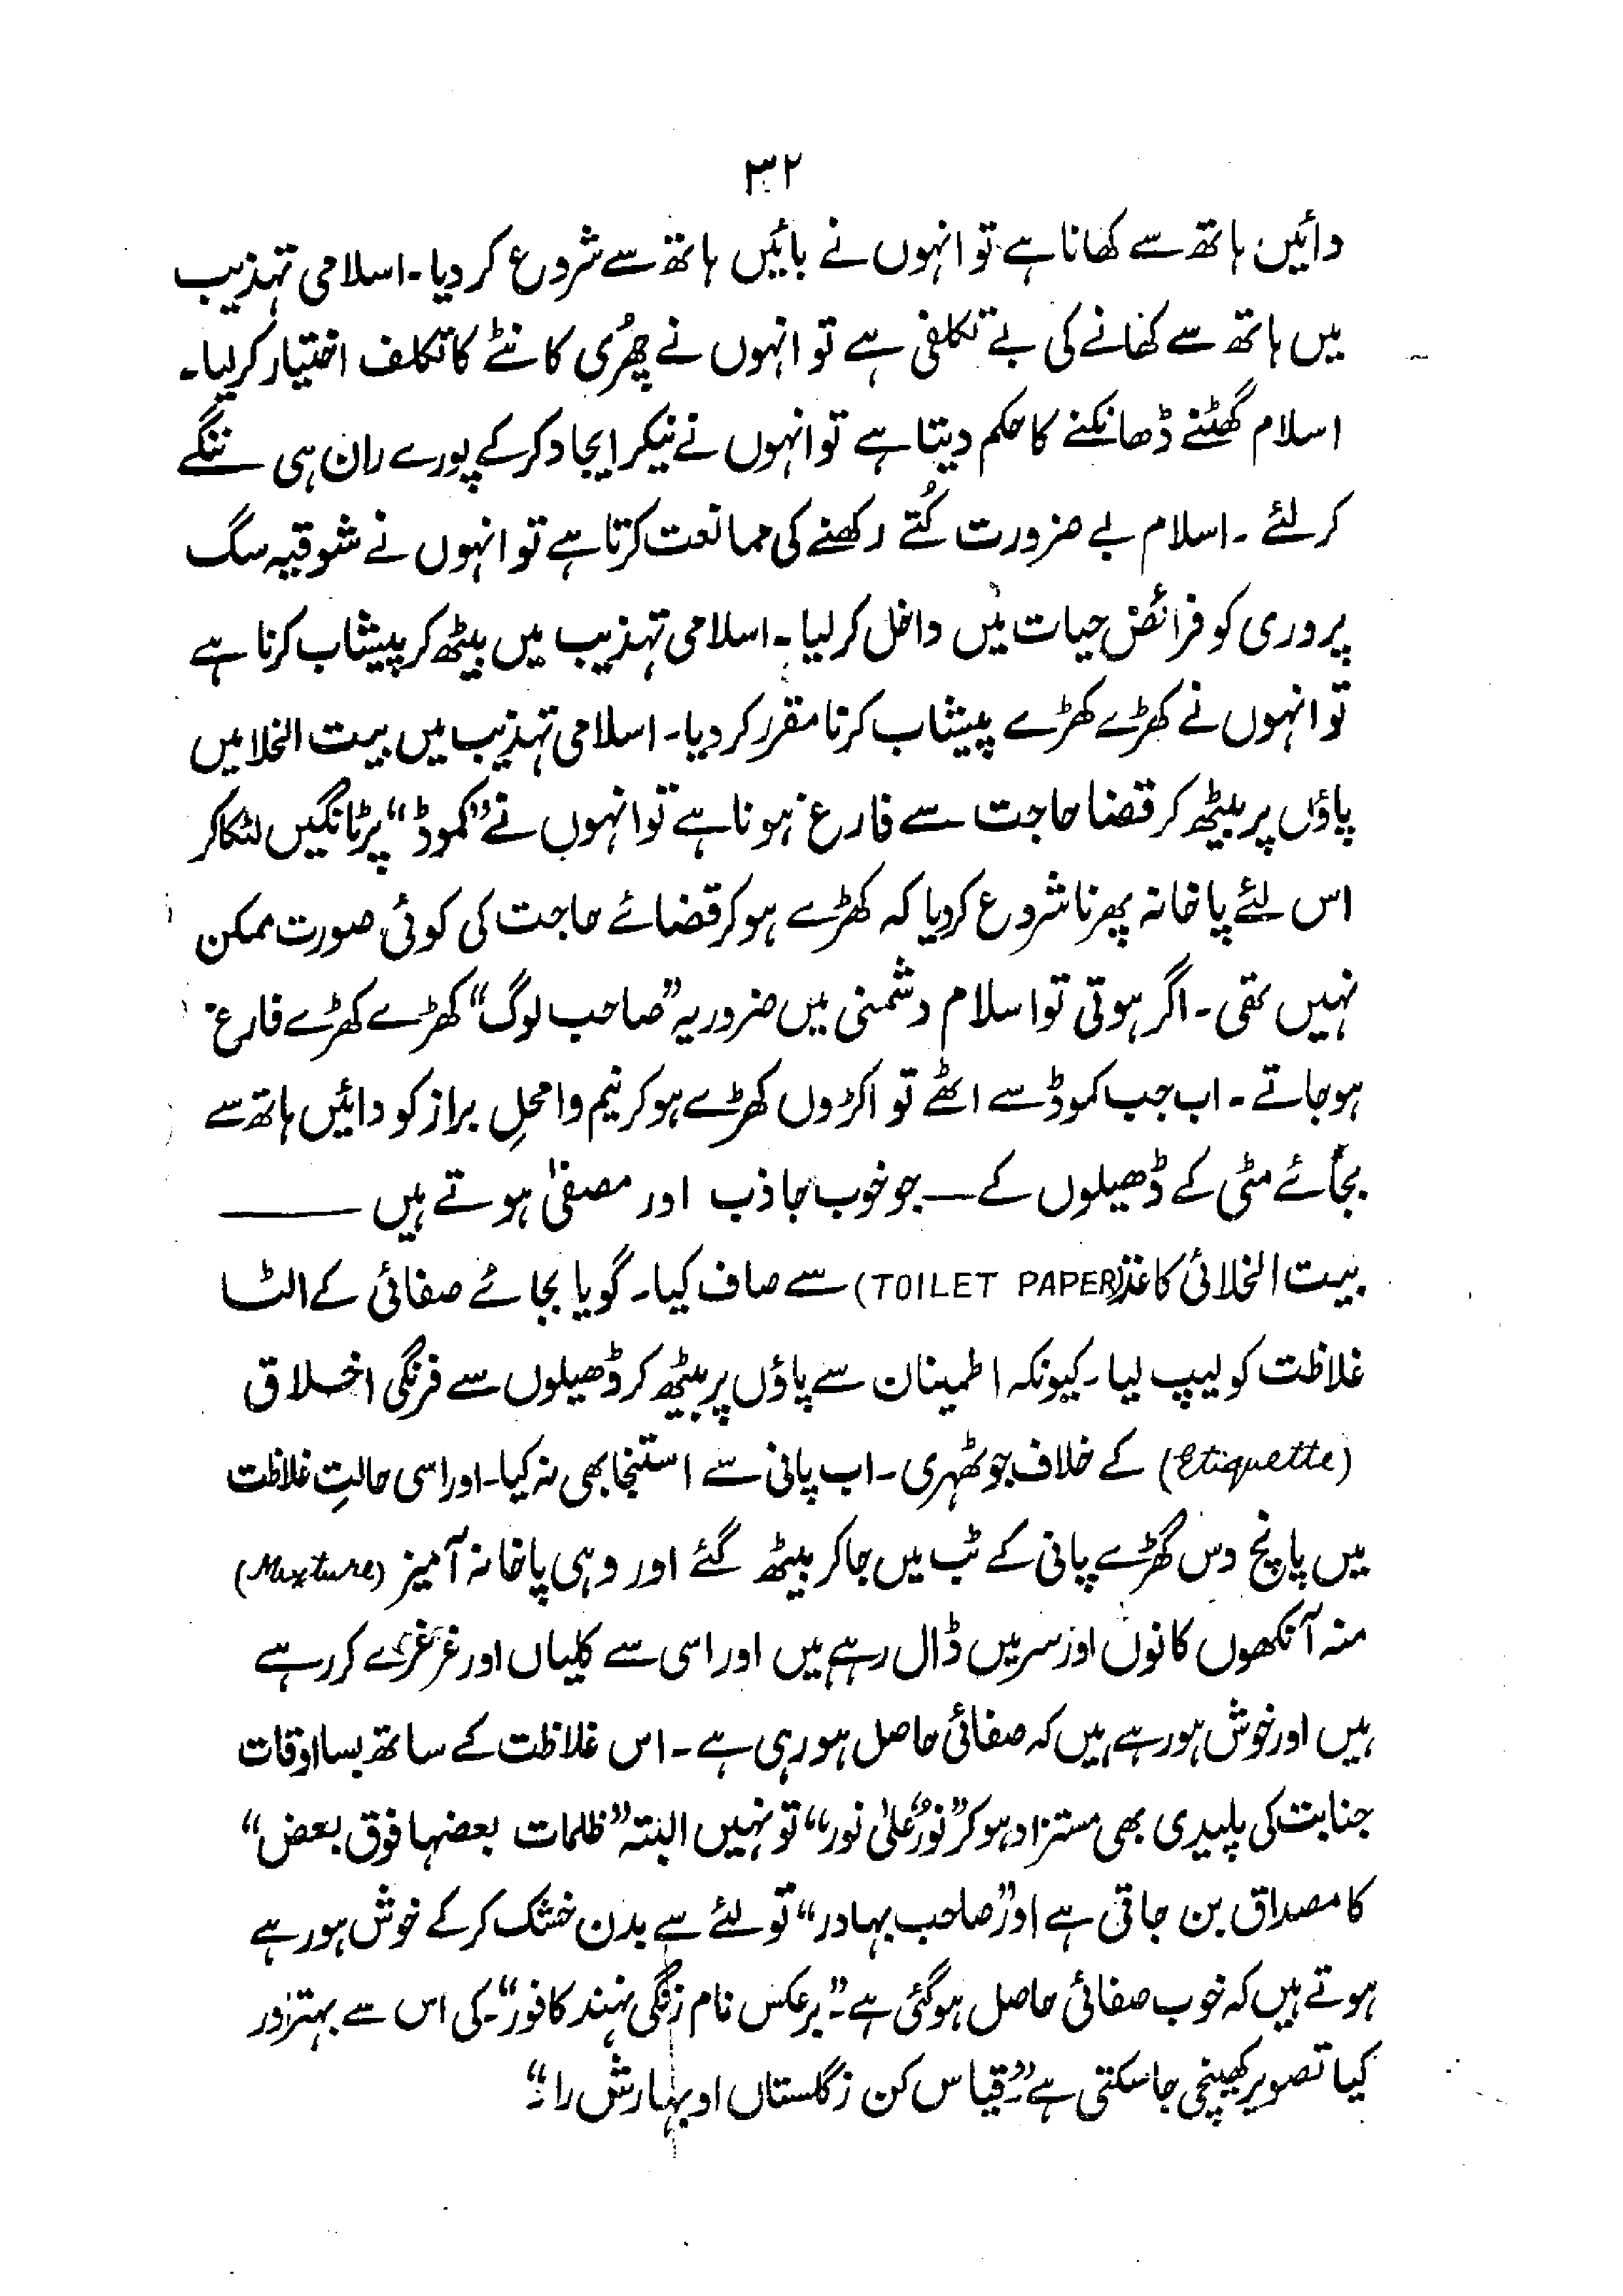 ۳۲
دائیں ہاتھ سے کھانا ہے تو انہوں نے بائیں ہاتھ سے شروع کر دیا۔ اسلامی تہذیب
میں ہاتھ سے کھانے کی بے تکلفی ہے تو انہوں نے چھُری کانٹے کا تکلف اختیار کر لیا۔
اسلام گھٹنے ڈھانکنے کا حکم دیتا ہے تو انہوں نے نیکر ایجاد کر کے پورے ران ہی ننگے
کر لئے ۔ اسلام بے ضرورت کُتے رکھنے کی ممانعت کرتا ہے تو انہوں نے شوقیہ سگ
پروری کو فرائض حیات میں داخل کر لیا۔ اسلامی تہذیب میں بیٹھ کر پیشاب کرنا ہے
تو انہوں نے کھڑے کھڑے پیشاب کرنا مقرر کر دیا۔ اسلامی تہذیب میں بیت الخلا میں
پاؤں پر بیٹھ کر قضا حاجت سے فارغ ہونا ہے تو انہوں نے ”کموڈ“ پر ٹانگیں لٹکا کر
اس لئے پاخانہ پھرنا شروع کر دیا کہ کھڑے ہو کر قضائے حاجت کی کوئی صورت ممکن
نہیں تھی۔ اگر ہوتی تو اسلام دشمنی میں ضرور یہ ”صاحب لوگ“ کھڑے کھڑے فارغ
ہو جاتے ۔ اب جب کموڈ سے اٹھے تو اکڑوں کھڑے ہو کر نیم وا محلِ براز کو دائیں ہاتھ سے
بجائے مٹی کے ڈھیلوں کے — جو خوب جاذب اور مصفیٰ ہوتے ہیں ———
بیت الخلائی کاغذ (TOILET PAPER) سے صاف کیا۔ گویا بجائے صفائی کے الٹا
غلاظت کو لیپ لیا۔ کیونکہ اطمینان سے پاؤں پر بیٹھ کر ڈھیلوں سے فرنگی اخلاق
(Etiquette) کے خلاف جو ٹھہری۔ اب پانی سے استنجا بھی نہ کیا۔ اور اسی حالتِ غلاظت
میں پانچ دس گھڑے پانی کے ٹب میں جا کر بیٹھ گئے اور وہی پاخانہ آمیز (Mixture)
منہ آنکھوں کانوں اور سر میں ڈال رہے ہیں اور اسی سے کلیاں اور غرغرے کر رہے
ہیں اور خوش ہو رہے ہیں کہ صفائی حاصل ہو رہی ہے۔ اس غلاظت کے ساتھ بسا اوقات
جنابت کی پلیدی بھی مستزاد ہو کر ”نورٌ علیٰ نور“ تو نہیں البتہ ”ظلمات بعضہا فوق بعض“
کا مصداق بن جاتی ہے اور ”صاحب بہادر“ تولئے سے بدن خشک کر کے خوش ہو رہے
ہوتے ہیں کہ خوب صفائی حاصل ہو گئی ہے۔ ”برعکس نام زنگی نہند کافور“۔ کی اس سے بہتر اور
کیا تصویر کھینچی جا سکتی ہے۔ ”قیاس کن ز گلستاں او بہارش را۔“